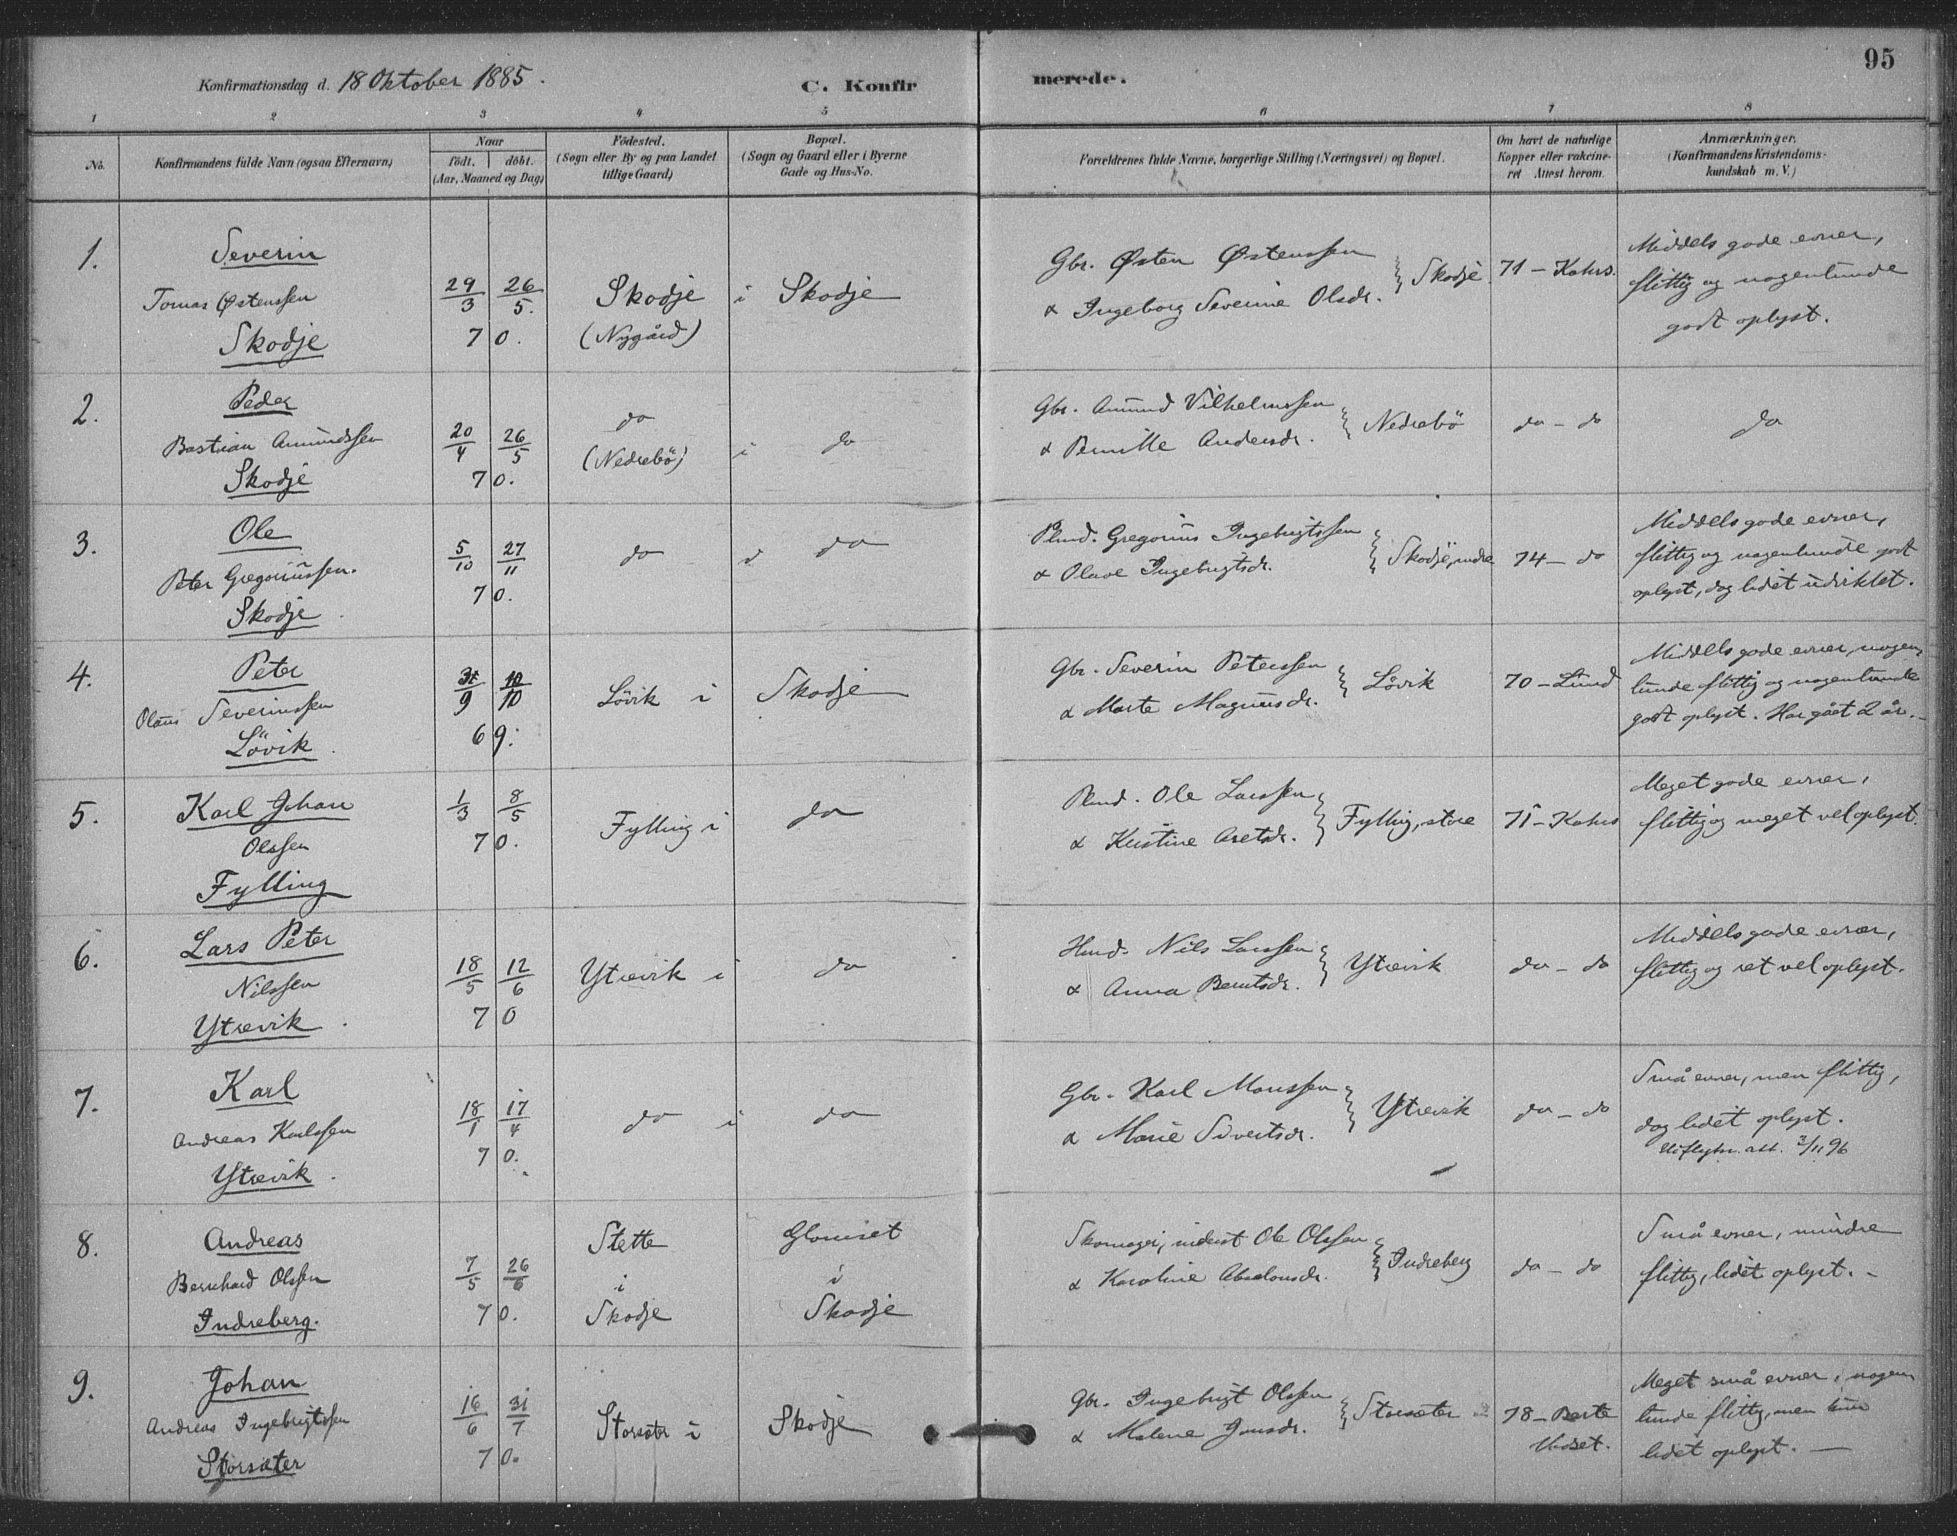 95
Konfirmationsdag d. 18 Oktober 1885.
C. Konfirmerede.
1 2 3 4 5 6 7 8
No.
Konfirmandens fulde Navn (ogsaa Efternavn)
Naar
födt. döbt.
(Aar, Maaned og Dag)
Födested.
(Sogn eller By og paa Landet
tillige Gaard)
Bopæl.
(Sogn og Gaard eller i Byerne
Gade og Hus-No.
Forældrenes fulde Navne, borgerlige Stilling (Næringsvei) og Bopæl.
Om havt de naturlige
Kopper eller vakcine-
ret Attest herom.
Anmærkninger.
(Konfirmandens Kristendoms-
kundskab m. V.)
1.
Severin
Tomas Østenssen
Skodje
29/3 26/5.
70.
Skodje i
(Nygård)
Skodje
Gbr. Østen Østenssen
& Ingeborg Severine Olsdr.
Skodje
71 - Kahrs.
Middels gode evner,
flittig og nogenlunde
godt oplyst.
2.
Peder
Bastian Amundssen
Skodje
20/4 26/5
70.
do
(Nedrebö) i
do
Gbr. Amund Vilhelmssen
& Pernille Andersdr.
Nedrebö
do - do
do
3.
Ole
Peter Gregoriussen.
Skodje
5/10 27/11
70.
do
do
Plmd. Gregorius Ingebrigtssen
& Olave Ingebrigtsdr.
Skodje, indre
74 - do
Middels gode evner,
flittig og nogenlunde godt
oplyst, dog lidet udviklet.
4.
Peter
Olaus Severinssen
Lövik
9 10/10
69.
Lövik i
Skodje
Gbr. Severin Peterssen
& Marte Magnusdr.
Lövik
70 - Lund
Middels gode evner, nogen-
lunde flittig og nogenlunde
godt oplyst. Har gået 2 år.
5.
Karl Johan
Olssen
Fylling
1/3 8/5
70.
Fylling i
do
Plmd. Ole Larssen
& Kristine Aretsdr.
Fylling, store
71 - Kahrs
Meget gode evner,
flittig og meget vel oplyst.
6.
Lars Peter
Nilssen
Ytrevik
18/5 12/6
70
Ytrevik i
do
Hmd. Nils Larssen
& Anna Berntsdr.
Ytrevik
do - do
Middels gode evner,
flittig og ret vel oplyst.
7.
Karl
Andreas Karlssen
Ytrevik
18/1 17/4
70.
do i
do
Gbr. Karl Monssen
& Marie Sivertsdr.
Ytrevik
do - do
Små evner, men flittig,
dog lidet oplyst.
Utflytn. att. 3/11 96
8.
Andreas
Bernhard Olssen
Indreberg.
7/5 26/6
70.
Stette
i
Skodje
Glomset
i
Skodje
Skomager, inderst Ole Olssen
& Karoline Absalonsdr.
Indreberg
do - do
Små evner, mindre
flittig, lidet oplyst.
9.
Johan
Andreas Ingebrigtssen
Storsæter
16/6 31/7
70.
Storsæter i
Skodje
Gbr. Ingebrigt Olssen
& Malene Jonsdr.
Storsæter
78 - Berte
Meget små evner, nogen-
lunde flittig, men kun
lidet oplyst.